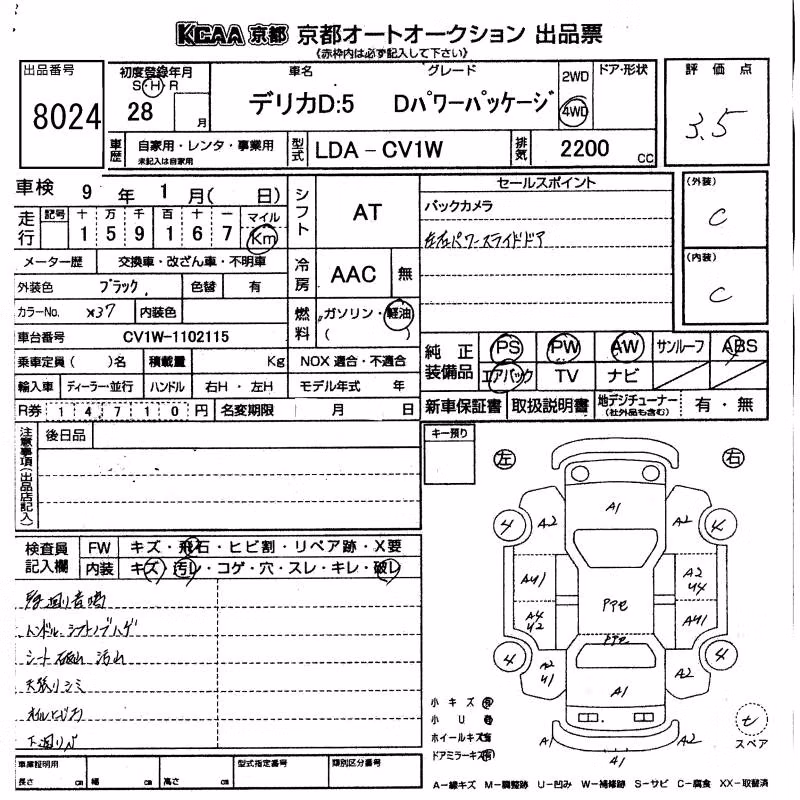 KCAA 京都 京都オートオークション 出品票
《赤枠内は必ず記入して下さい》
出品番号 8024
初度登録年月 S・H・R 28 月
車名 デリカD:5
グレード Dパワーパッケージ
2WD 4WD
ドア・形状
評価点 3.5
車歴 自家用・レンタ・事業用
未記入は自家用
型式 LDA-CV1W
排気 2200 cc
車検 9年 1月( 日)
シフト AT
セールスポイント
バックカメラ
左右パワースライドドア
(外装) C
(内装) C
走行 記号 十万千百十一
1 5 9 1 6 7 マイル Km
メーター歴 交換車・改ざん車・不明車
冷房 AAC 無
外装色 ブラック 色替 有
カラーNo. X37 内装色
燃料 ガソリン・軽油
( )
車台番号 CV1W-1102115
乗車定員( )名 積載量 Kg NOX適合・不適合
輸入車 ディーラー・並行 ハンドル 右H・左H モデル年式 年
R券 14710円 名変期限 月 日
純正装備品 PS PW AW サンルーフ ABS
エアバック TV ナビ
新車保証書 取扱説明書 地デジチューナー(社外品も含む) 有・無
注意事項(出品店記入) 後日品
キー預り
左 右
検査員記入欄 FW キズ・飛石・ヒビ割・リペア跡・X要
内装 キズ・汚レ・コゲ・穴・スレ・キレ・破レ
ハンドル、シフトノブハゲ
シート破れ 汚れ
天張りシミ
下廻りサビ
A1
4 A2 A2 4
AU1 A2 U4
A4 U2 AU1
4 A2 U1 A2 4
A1
A1 A1 A2
小キズ 有
小U
ホイールキズ 有
ドアミラーキズ 有
スペア
車庫証明用 型式指定番号 類別区分番号
長さ cm 幅 cm 高さ cm
A-線キズ M-調整跡 U-凹み W-補修跡 S-サビ C-腐食 XX-取替済